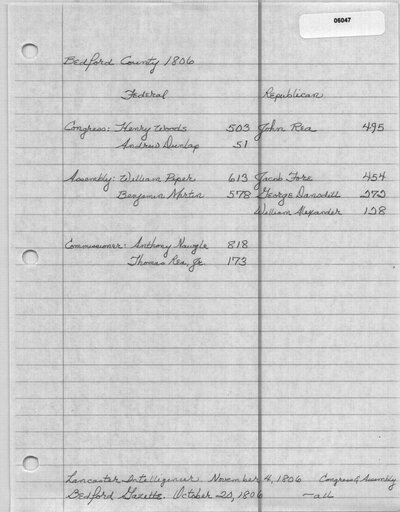 06047
Bedford County 1806
Federal Republican
Congress: Henry Woods 503 John Rea 495
Andrew Dunlap 51
Assembly: William Piper 613 Jacob Fore 454
Benjamin Martin 578 George 272
William Alexander 128
Commissioner: Anthony Naugle 818
Thomas Rea, Jr. 173
Lancaster Intelligencer. November 4, 1806 Congress & Assembly
Bedford Gazette. October 20, 1806 —all